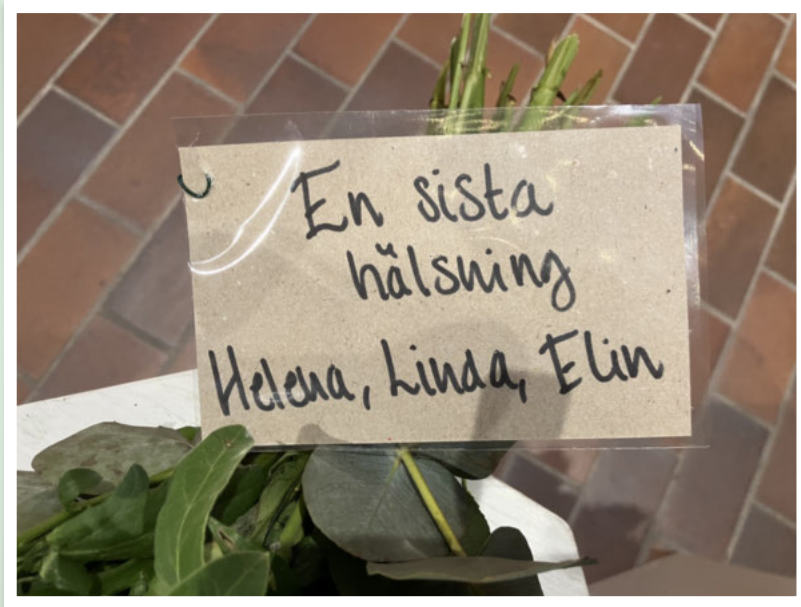 En sista
hälsning
Helena, Linda, Elin